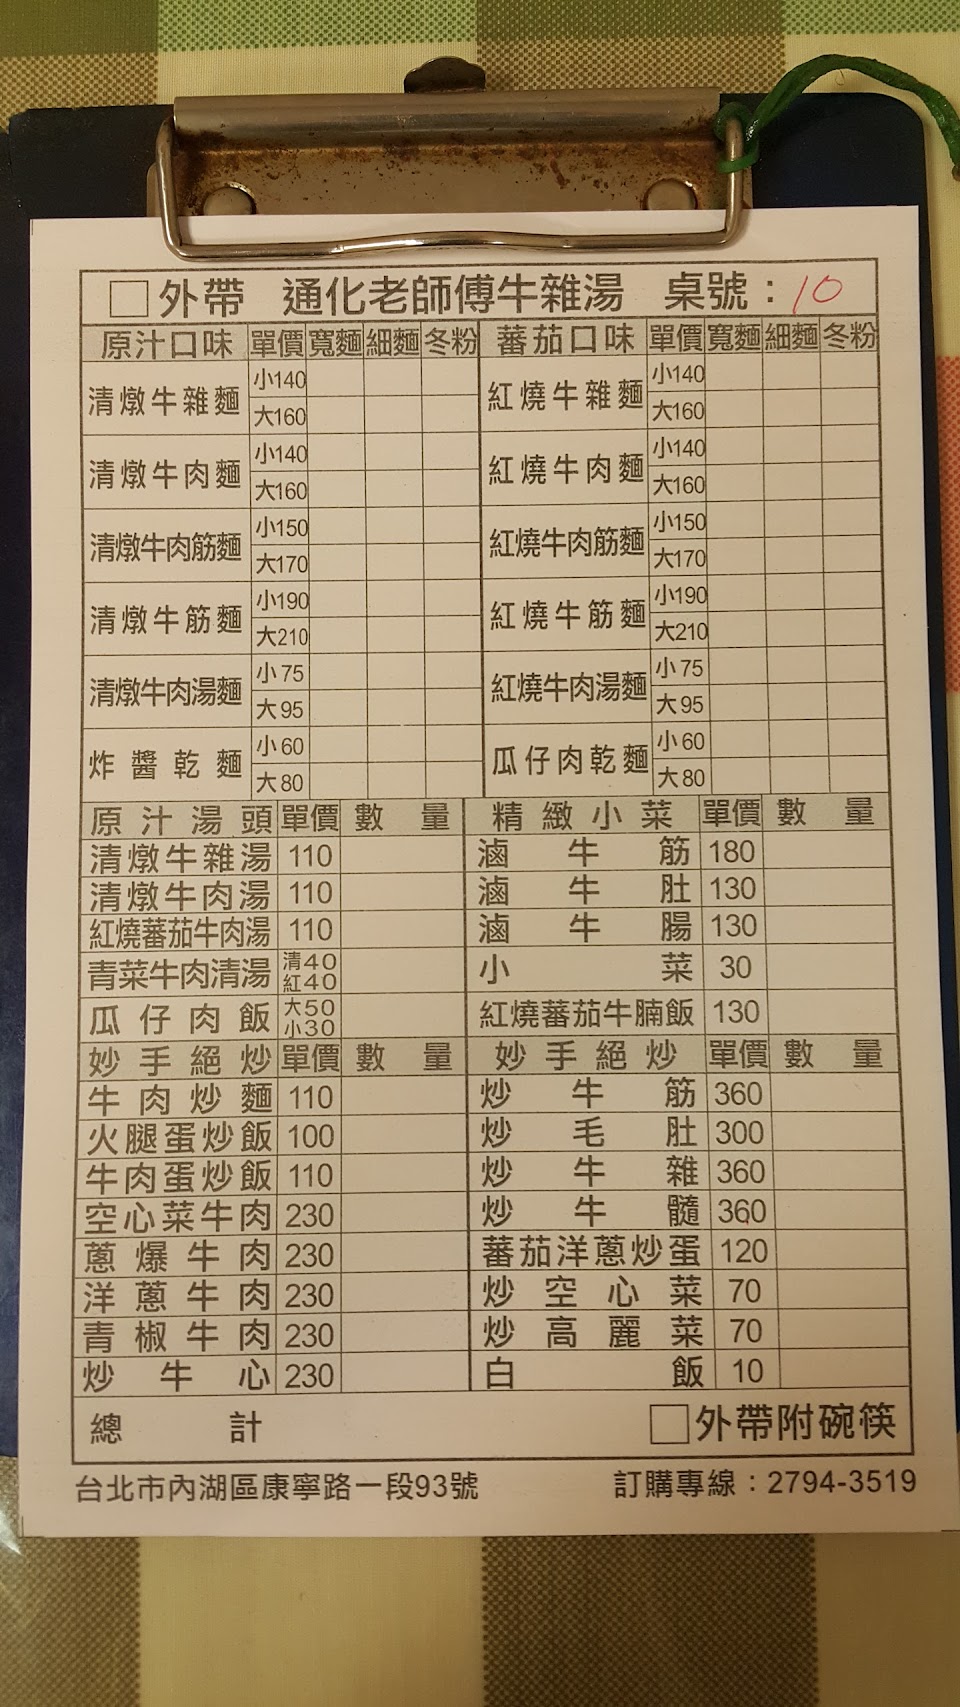 □外帶 通化老師傅牛雜湯 桌號：10
原汁口味 單價 寬麵 細麵 冬粉 蕃茄口味 單價 寬麵 細麵 冬粉
清燉牛雜麵 小140 大160 紅燒牛雜麵 小140 大160
清燉牛肉麵 小140 大160 紅燒牛肉麵 小140 大160
清燉牛肉筋麵 小150 大170 紅燒牛肉筋麵 小150 大170
清燉牛筋麵 小190 大210 紅燒牛筋麵 小190 大210
清燉牛肉湯麵 小75 大95 紅燒牛肉湯麵 小75 大95
炸醬乾麵 小60 大80 瓜仔肉乾麵 小60 大80
原汁湯頭 單價 數量 精緻小菜 單價 數量
清燉牛雜湯 110 滷牛筋 180
清燉牛肉湯 110 滷牛肚 130
紅燒蕃茄牛肉湯 110 滷牛腸 130
青菜牛肉清湯 清40 紅40 小菜 30
瓜仔肉飯 大50 小30 紅燒蕃茄牛腩飯 130
妙手絕炒 單價 數量 妙手絕炒 單價 數量
牛肉炒麵 110 炒牛筋 360
火腿蛋炒飯 100 炒毛肚 300
牛肉蛋炒飯 110 炒牛雜 360
空心菜牛肉 230 炒牛髓 360
蔥爆牛肉 230 蕃茄洋蔥炒蛋 120
洋蔥牛肉 230 炒空心菜 70
青椒牛肉 230 炒高麗菜 70
炒牛心 230 白飯 10
總計 □外帶附碗筷
台北市內湖區康寧路一段93號 訂購專線：2794-3519